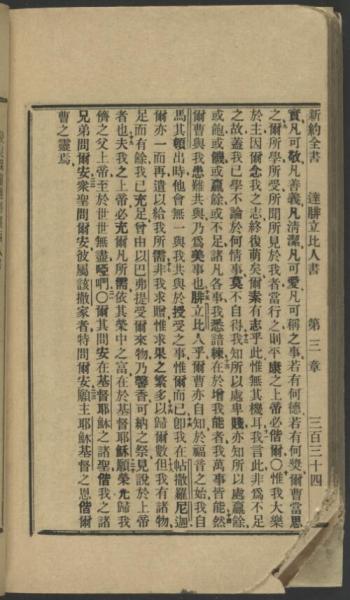 新約全書　達腓立比人書　第三章　三百三十四
實凡可敬凡善義凡清潔凡可愛凡可稱之事若有何德若有何獎爾曹當思
之爾所學所受所聞所見於我者當行之則平康之上帝必偕爾〇惟我大樂
於主因爾念我之志終復萌矣爾素有志乎此惟無其機耳我言此非爲不足
之故蓋我已學不論於何情事莫不自得我知所以處卑賤亦知所以處贏餘
或飽或饑或贏餘或不足諸凡各事我悉諳練在於增我能者我萬事皆能然
爾曹與我患難共與乃爲美事也腓立比人乎爾曹亦自知於福音之始我自
馬其頓出時他會無一與我共與於授受之事惟爾而已卽我在帖撒羅尼迦
爾亦一而再遣以給我所需非我求贈惟求果之繁多以歸爾數但我有諸物
足而有餘我已充足曾由以巴弗提受爾來物乃馨香可納之祭見說於上帝
者也夫我之上帝必充爾凡所需依其榮中之富在於基督耶穌願榮光歸我
儕之父上帝至於世世無盡啞們〇爾其問安在基督耶穌之諸聖偕我之諸
兄弟問爾安衆聖問爾安彼屬該撒家者特問爾安願主耶穌基督之恩偕爾
曹之靈焉